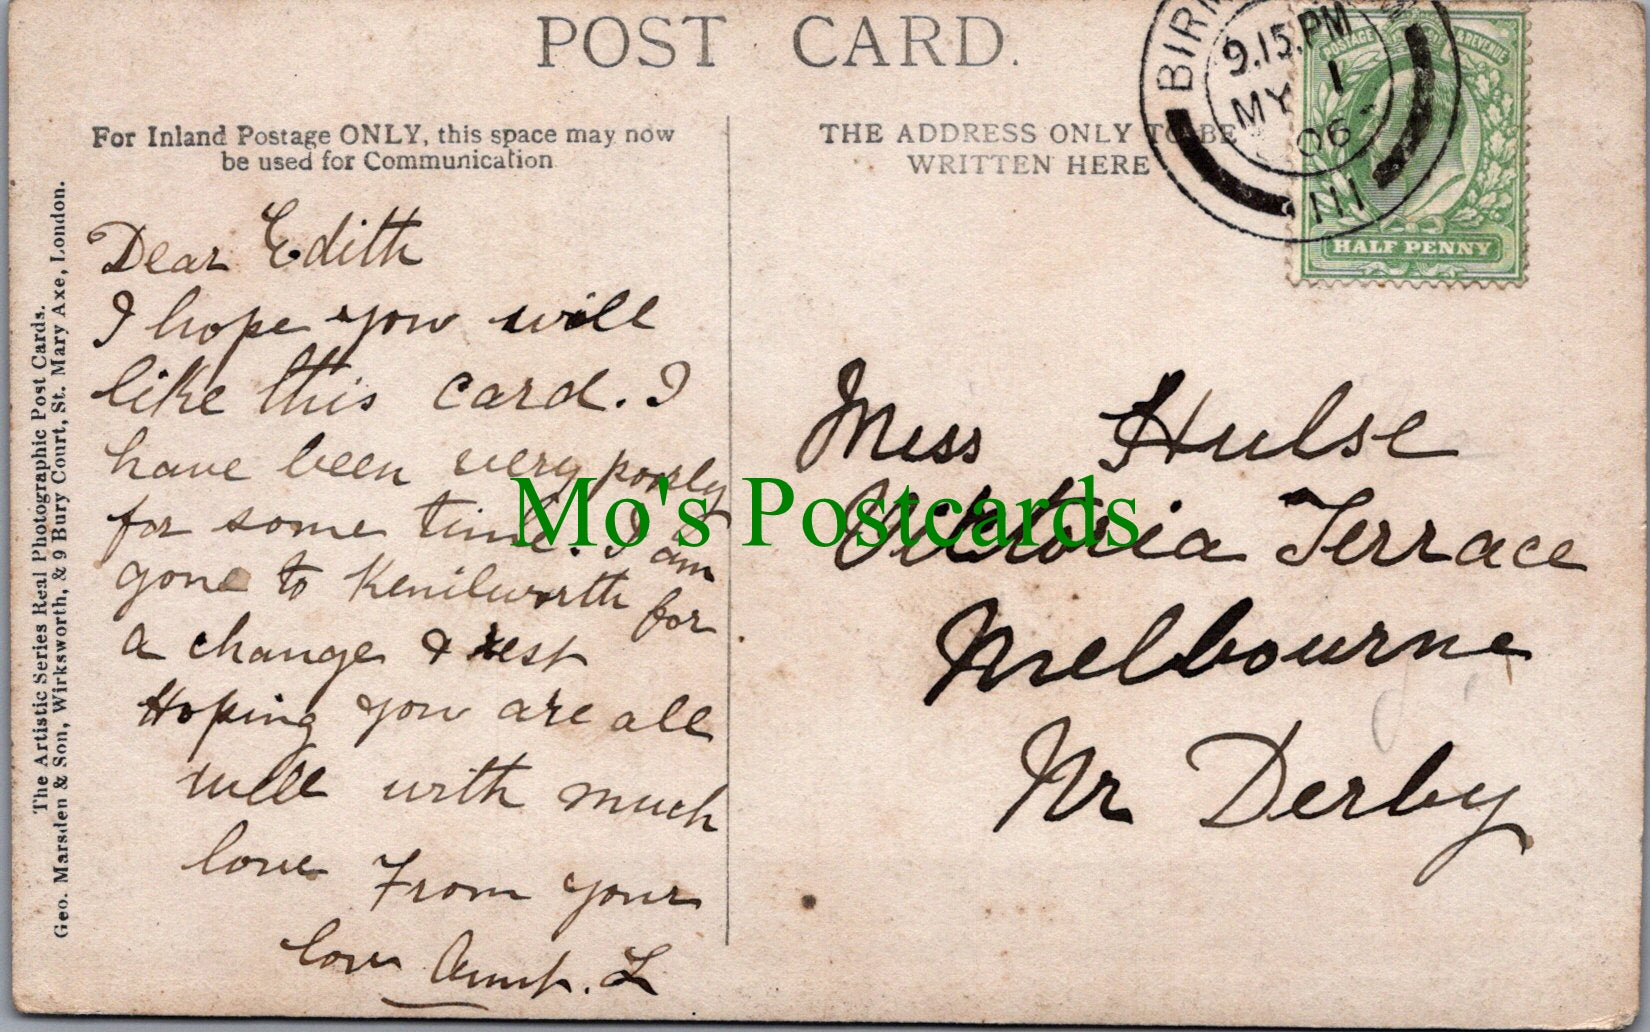 POST CARD.
For Inland Postage ONLY, this space may now
be used for Communication
THE ADDRESS ONLY TO BE
WRITTEN HERE
BIRM
9.15.PM
MY 1
06
111
POSTAGE & REVENUE
HALF PENNY
The Artistic Series Real Photographic Post Cards.
Geo. Marsden & Son, Wirksworth, & 9 Bury Court, St. Mary Axe, London.
Dear Edith
I hope you will
like this card. I
have been very poorly
for some time. I am
gone to Kenilworth for
a change & rest
Hoping you are all
well with much
love From your
lov Aunt. L
Miss Hulse
Victoria Terrace
Melbourne
Nr Derby
Mo's Postcards